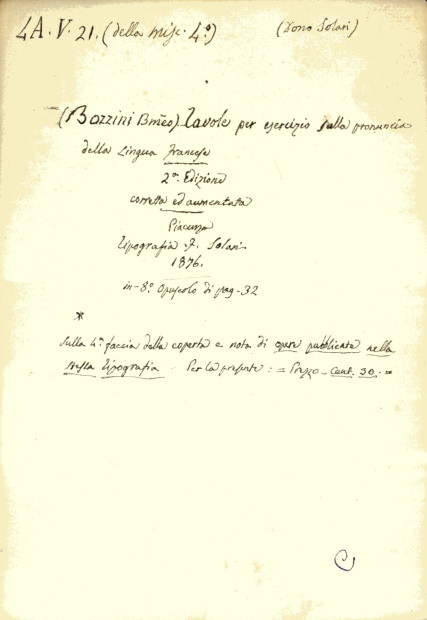 4A. V. 21. (della misc. 4º) (Dono Solari)
(Bozzini Bmeo) Tavole per esercizio sulla pronuncia
della Lingua francese
2ª. Edizione
corretta ed aumentata
Piacenza
Tipografia F. Solari
1876.
in-8º Opuscolo di pag-32
*
sulla 4ª faccia della coperta e nota di opere pubblicate nella
stessa Tipografia - Per la presente : = Prezzo - Cent. 30 - =